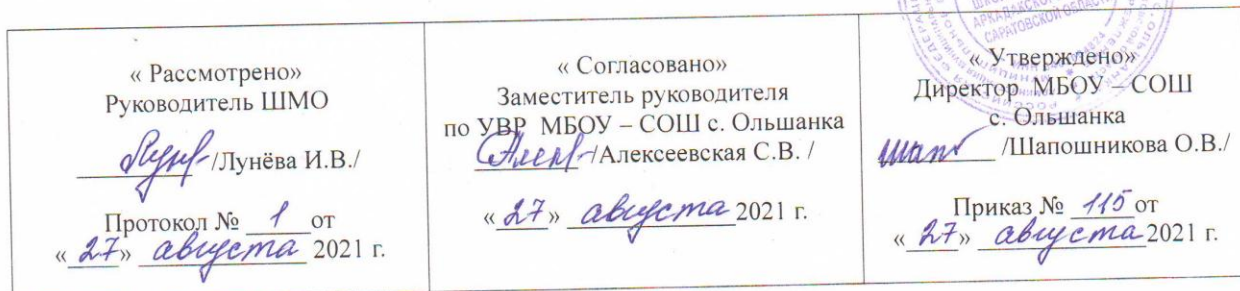 « Рассмотрено»
Руководитель ШМО
/Лунёва И.В./
Протокол № 1 от
« 27 » августа 2021 г.
« Согласовано»
Заместитель руководителя
по УВР МБОУ – СОШ с. Ольшанка
/Алексеевская С.В. /
« 27 » августа 2021 г.
« Утверждено»
Директор МБОУ – СОШ
с. Ольшанка
/Шапошникова О.В./
Приказ № 115 от
« 27 » августа 2021 г.
САРАТОВСКОЙ ОБЛАСТИ